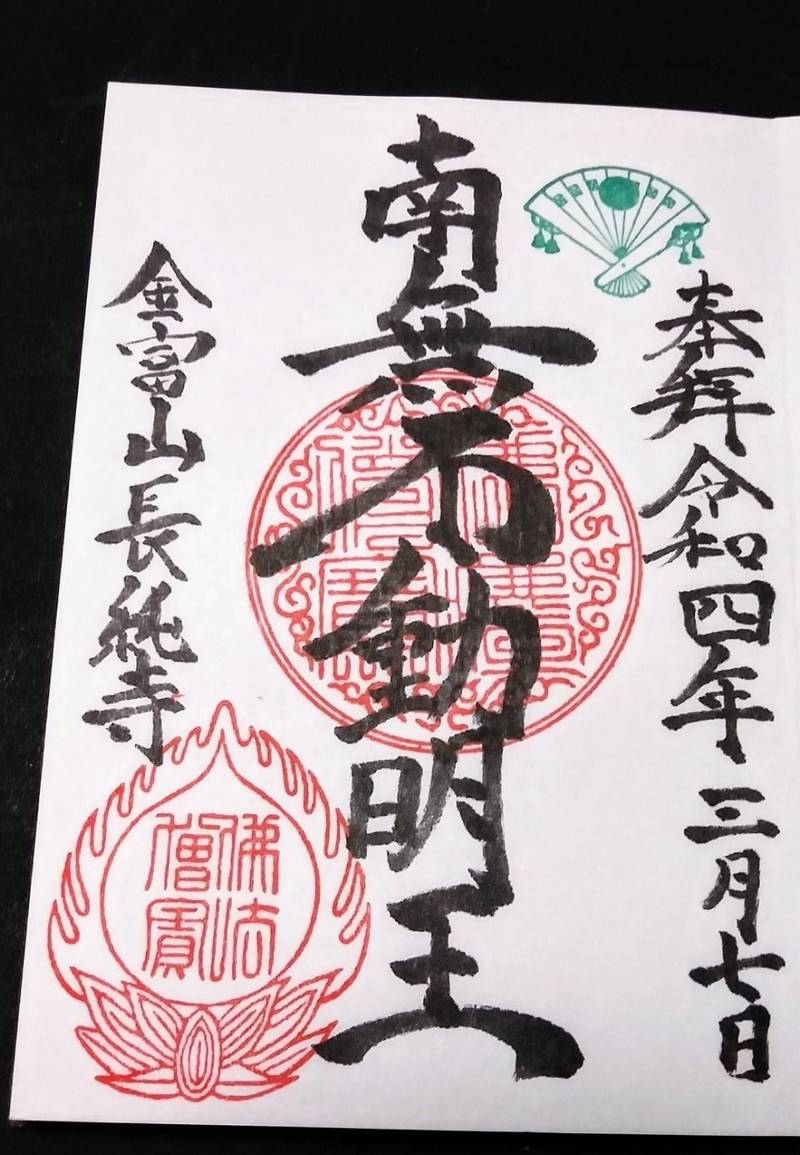 奉拜 令和四年三月七日
南無不動明王
金富山長純寺
佛法
僧寳